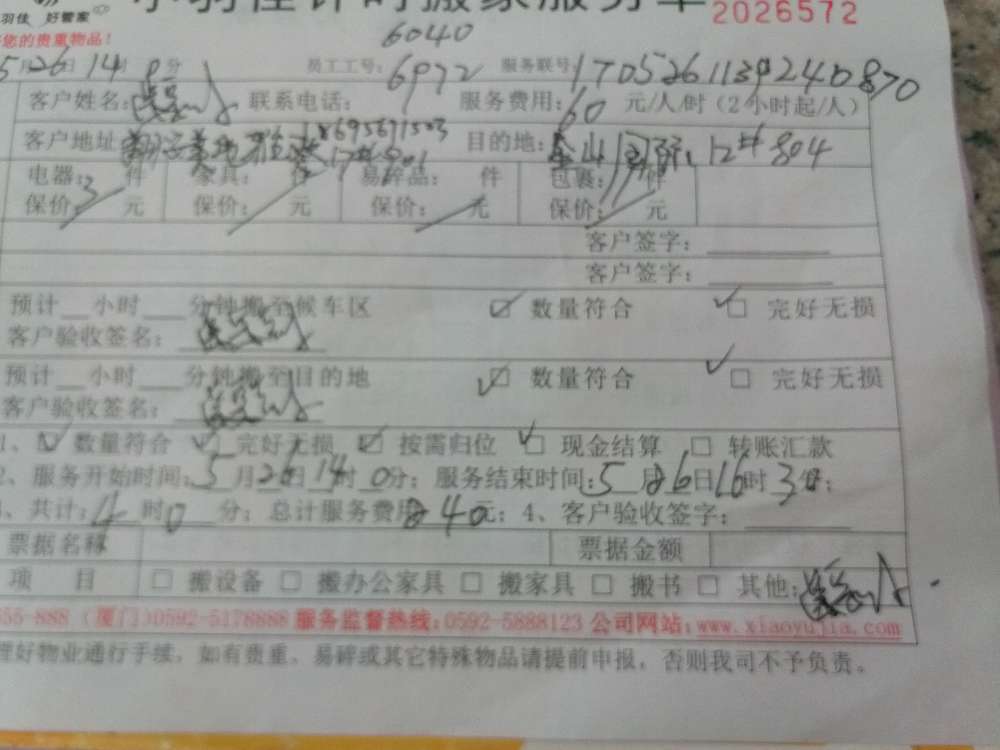 小羽佳计时搬家服务单 2026572
羽佳 好管家
您的贵重物品！
6040
5月26日14时0分 员工工号：6972 服务联号：1705261139240870
客户姓名： 联系电话： 服务费用：60元/人/时（2小时起/人）
18695671503
客户地址 17#901 目的地：金山国际，12#804
电器：3件 家具： 件 易碎品： 件 包裹： 件
保价： 元 保价： 元 保价： 元 保价： 元
客户签字：
客户签字：
预计__小时___分钟搬至候车区 数量符合 完好无损
客户验收签名：
预计__小时___分钟搬至目的地 数量符合 完好无损
客户验收签名：
1、 数量符合 完好无损 按需归位 现金结算 转账汇款
2、服务开始时间：5月26日14时0分；服务结束时间：5月26日16时3分；
、共计：4时0分；总计服务费用240元；4、客户验收签字：
票据名称 票据金额
项 目 搬设备 搬办公家具 搬家具 搬书 其他：
555-888（厦门）0592-5178888 服务监督热线：0592-5888123 公司网站：www.xiaoyujia.com
理好物业通行手续，如有贵重、易碎或其它特殊物品请提前申报，否则我司不予负责。